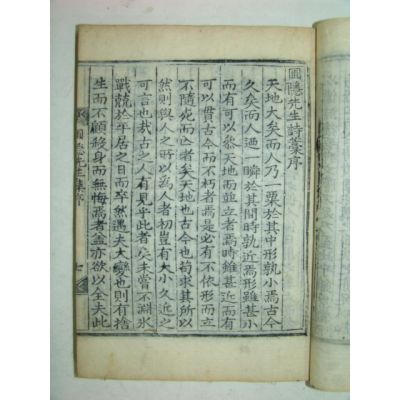 圃隱先生詩藁序
天地大矣而人乃一粟於其中形孰小焉古今
久矣而人迺一瞬於其間時孰近焉形雖甚小
而有可以參天地而並立者焉時雖甚近而有
可以貫古今而不朽者焉是必有不依形而立
不隨死而亡者矣天地也古今也苟求其所以
然則與人之時以爲人者初豈有大小久近之
可言也哉古之人有見乎此者矣未嘗不淵氷
戰兢於平居之日而卒然遇夫大變也則有捨
生而不顧殺身而無悔焉者盖亦欲以全夫此
圃隱先生集序
七